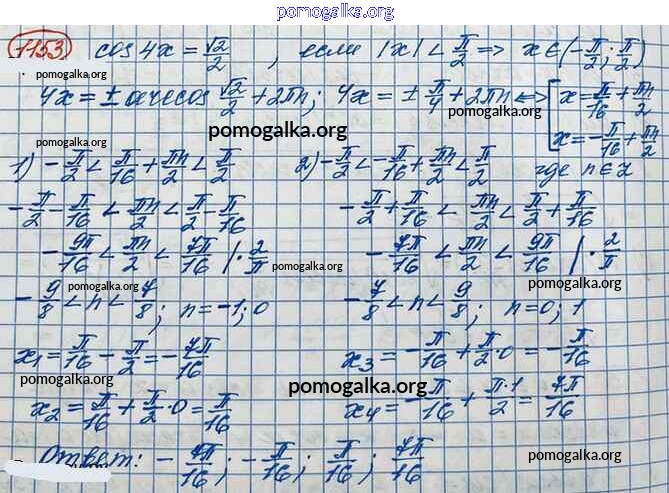 pomogalka.org
1153 cos4x = √2/2 , если |x| < π/2 ⇒ x ∈ (-π/2; π/2)
pomogalka.org
4x = ± arccos √2/2 + 2πn; 4x = ± π/4 + 2πn ⇔ [x = π/16 + πn/2
pomogalka.org
pomogalka.org
x = -π/16 + πn/2
1) -π/2 < π/16 + πn/2 < π/2 2) -π/2 < -π/16 + πn/2 < π/2 где n ∈ Z
pomogalka.org
-π/2 - π/16 < πn/2 < π/2 - π/16 -π/2 + π/16 < πn/2 < π/2 + π/16
-9π/16 < πn/2 < 7π/16 | · 2/π -7π/16 < πn/2 < 9π/16 | · 2/π
pomogalka.org
pomogalka.org
-9/8 < n < 7/8; n = -1; 0 -7/8 < n < 9/8; n = 0; 1
pomogalka.org
x1 = π/16 - π/2 = -7π/16 x3 = -π/16 + π/2 · 0 = -π/16
pomogalka.org
pomogalka.org
x2 = π/16 + π/2 · 0 = π/16 x4 = -π/16 + π·1/2 = 7π/16
Ответ: -7π/16; -π/16; π/16; 7π/16
pomogalka.org